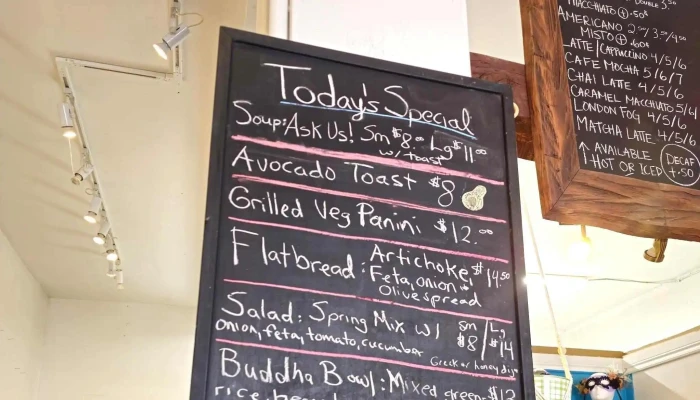 Today's Special
Soup: Ask Us! Sm $8.00 Lg $11.00
w/ toast
Avocado Toast $8
Grilled Veg Panini $12.00
Flatbread: Artichoke $14.50
Feta, onion +
Olive spread
Salad: Spring Mix w/ Sm $8 / Lg $14
onion, feta, tomato, cucumber
Greek or honey dijon
Buddha Bowl: Mixed greens
rice,
DOUBLE 3.50
MACCHIATO + .50¢
AMERICANO
MISTO + .60¢
LATTE/CAPPUCCINO 4/5/6
CAFE MOCHA 5/6/7
CHAI LATTE 4/5/6
CARAMEL MACCHIATO 5/6/
LONDON FOG 4/5/6
MATCHA LATTE 4/5/6
↑ AVAILABLE
HOT OR ICED
DECAF
+.50